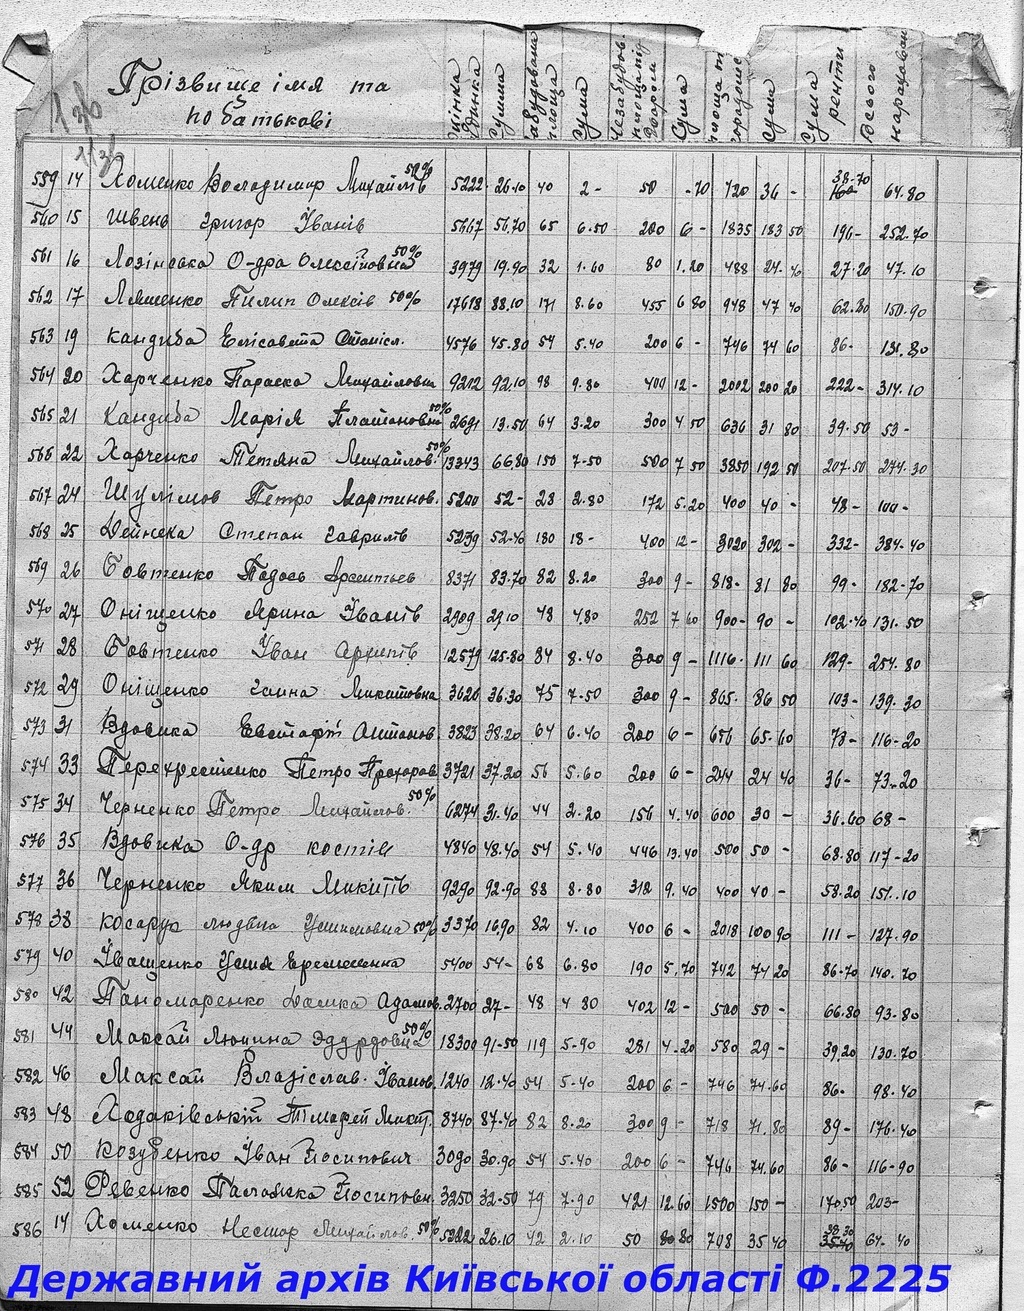 Прізвише імя та
по батькові
оцінка
будинка
сумма
забудована
площа
сума
Незабудов.
площа під
двором
сума
сума
сума
ренти
Всього
нараховано
136
113
559 14 Хоменко Володимир Михайлів 50% 5222 26.10 40 2 - 50 -70 720 36 - 38-70 64.80
560 15 Швень Григор Іванів 5667 56.70 65 6.50 200 6 - 1835 183 50 196- 252.70
561 16 Лозінська О-дра Олексіївна 50% 3979 19.90 32 1.60 80 1.20 488 24. 40 27-20 47.10
562 17 Ляшенко Пилип Олексів 50% 17618 88.10 171 8.60 455 6 80 948 47 40 62.80 150.90
563 19 Кандиба Елісавета Станісл. 4576 45.80 54 5.40 200 6 - 746 74 60 86- 131.80
564 20 Харченко Параска Михайловна 9212 92.10 98 9.80 400 12 - 2002 200 20 222- 314.10
565 21 Кандиба Марія Платановна 50% 2691 13.50 64 3.20 300 4 50 636 31 80 39.50 53 -
566 22 Харченко Тетяна Михайлов. 50% 13343 66.80 150 7-50 500 7 50 3850 192 50 207.50 274.30
567 24 Шулімов Петро Мартинов. 5200 52- 28 2.80 172 5.20 400 40 - 48- 100-
568 25 Дейнека Степан Гаврилів 5239 52.40 180 18- 400 12- 3020 302 - 332- 384.40
569 26 Товтенко Тодось Арсентьев 8371 83.70 82 8.20 300 9 - 818- 81 80 99- 182-70
570 27 Оніщенко Ярина Іванів 2909 29.10 48 4.80 252 7 60 900- 90 - 102.40 131.50
571 28 Товтенко Іван Архипів 12579 125.80 84 8.40 300 9 - 1116- 111 60 129- 254.80
572 29 Оніщенко Ганна Микитовна 3628 36.30 75 7.50 300 9 - 865. 86 50 103- 139.30
573 31 Вдовика Евстафій Антонов. 3823 38.20 64 6.40 200 6 - 656 65.60 78- 116-20
574 33 Перехрестенко Петро Прохоров 3721 37.20 56 5.60 200 6 - 244 24 40 36- 73-20
575 34 Черненко Петро Михайлов. 50% 6274 31.40 44 2.20 156 4.40 600 30 - 36.60 68 -
576 35 Вдовика О-др костів 4840 48.40 54 5.40 446 13.40 500 50 - 68.80 117-20
577 36 Черненко Яким Микитів 9290 92.90 88 8.80 312 9.40 400 40 - 58.20 151.10
578 38 косарук людвіга 50% 3370 16.90 82 4.10 400 6 - 2018 100 90 111 - 127.90
579 40 Іващенко 5400 54- 68 6.80 190 5.70 742 74 20 86-70 140.70
580 42 Паномаренко Домка Адамов. 2700 27- 48 4 80 402 12 - 500 50 - 66.80 93-80
581 44 Максай Люцина Эдуардовна 50% 18300 91-50 119 5-90 281 4.20 580 29 - 39.20 130.70
582 46 Максай Владіслав. Іванов 1240 12.40 54 5.40 200 6 - 746 74.60 86- 98.40
583 48 Ходаківський Тімофей Микит. 8740 87.40 82 8.20 300 9 - 718 71.80 89- 176.40
584 50 Козубенко Іван Йосипович 3090 30.90 54 5.40 200 6 - 746 74.60 86- 116-90
585 52 Ревенко Палажка Йосиповн. 3250 32-50 79 7.90 421 12.60 1500 150- 170.50 203-
586 14 Хоменко Нестор Михайлов. 50% 5222 26.10 42 2.10 50 80 708 35 40 38.30 64. 40
Державний архів Київської області Ф.2225